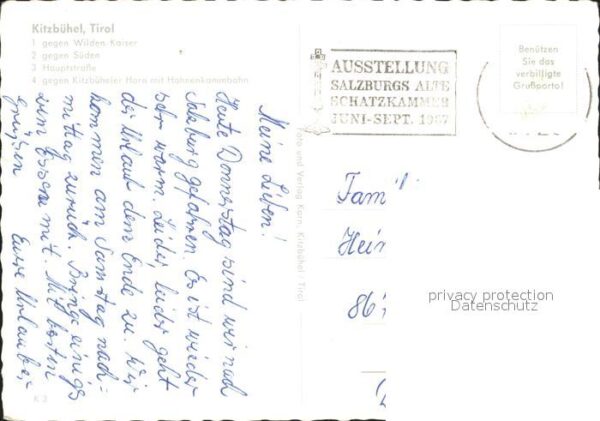 Kitzbühel, Tirol
1 gegen Wilden Kaiser
2 gegen Süden
3 Hauptstraße
4 gegen Kitzbüheler Horn mit Hahnenkammbahn
Meine Lieben!
Heute Donnerstag sind wir nach
Salzburg gefahren. Es ist wieder
sehr warm. Leider, leider geht
der Urlaub dem Ende zu. Wir
kommen am Samstag nach-
mittag zurück. Bringe einiges
zum Essen mit. Mit besten
Grüßen Eure Urlauber
K 3
Foto und Verlag Karn, Kitzbühel / Tirol
AUSSTELLUNG
SALZBURGS ALTE
SCHATZKAMMER
JUNI-SEPT. 1967
Benützen
Sie das
verbilligte
Großporto!
Fam
Hein
86
privacy protection
Datenschutz